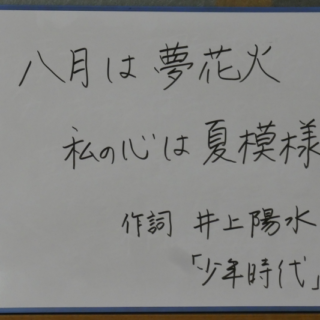 八月は夢花火
私の心は夏模様
作詞 井上陽水
「少年時代」